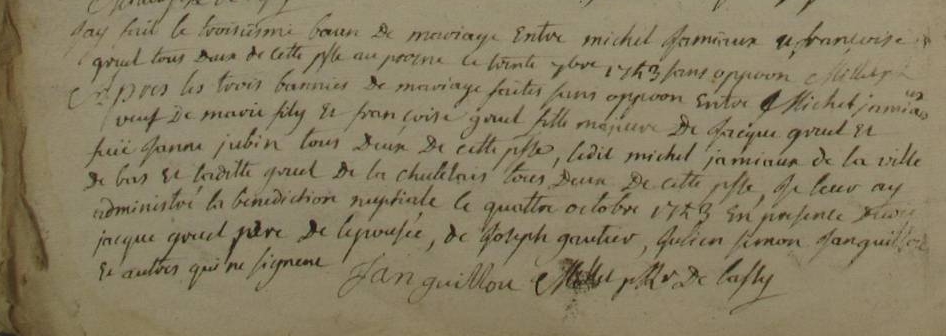 jay fait le troisiesme bann De mariage Entre michel jamiaux et francoise
gruel tous Deux de cette psse au prosne ce trente 7bre 1743 sans oppoon
Apres les trois bannies de mariage faites sans oppoon Entre Michel jamiaux
veuf De marie fily Et francoise gruel fille mineure De Jacque gruel Et
feüe Janne jubin tous Deux De cette psse, ledit michel jamiaux de la ville
de bas Et laditte gruel De la tous Deux De cette psse, Je leur ay
administré la benediction nuptiale le quattre octobre 1743 En presence
jacque gruel pere De lepousée, de Joseph gautier, Julien simon
Et autres qui ne signent Janguillou De